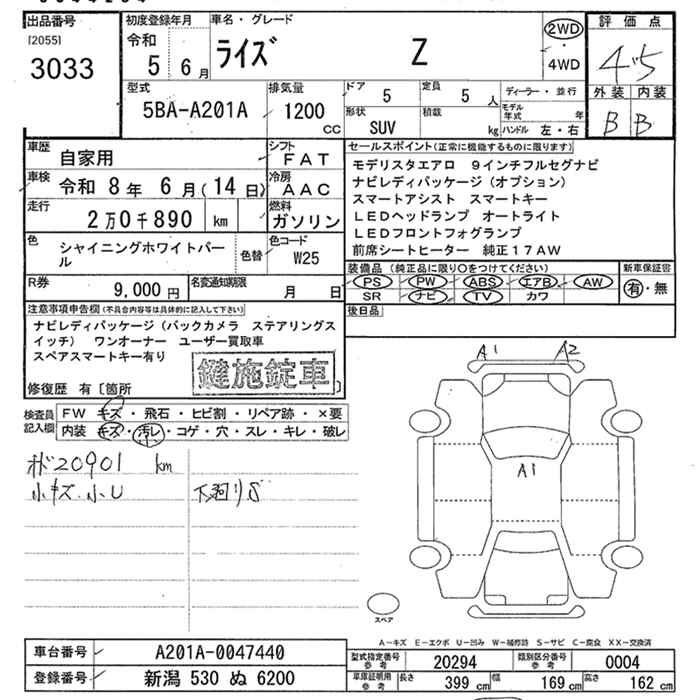 出品番号
[2055]
3033
初度登録年月
令和
5 6月
車名・グレード
ライズ Z
2WD
・
4WD
評価点
4.5
外装 内装
B B
型式
5BA-A201A
排気量
1200
CC
ドア
5
定員
5 人
形状
SUV
積載
kg
ディーラー・並行
モデル年式 年
ハンドル 左・右
車歴 自家用
シフト FAT
車検 令和 8年 6月(14日)
冷房 AAC
走行 2万0千890 km
燃料 ガソリン
色 シャイニングホワイトパール
色替
色コード W25
R券 9,000円
名変通知期限 月 日
セールスポイント(正常に機能するものに限ります)
モデリスタエアロ 9インチフルセグナビ
ナビレディパッケージ(オプション)
スマートアシスト スマートキー
LEDヘッドランプ オートライト
LEDフロントフォグランプ
前席シートヒーター 純正17AW
装備品(純正品に限り○をつけてください)
PS PW ABS エアB AW
SR ナビ TV カワ
新車保証書
有・無
後日品
注意事項申告欄(不具合内容等は具体的に記入して下さい)
ナビレディパッケージ(バックカメラ ステアリングス
イッチ) ワンオーナー ユーザー買取車
スペアスマートキー有り
鍵施錠車
修復歴 有[箇所 ]
検査員
記入欄
FW キズ・飛石・ヒビ割・リペア跡・×要
内装 キズ・汚レ・コゲ・穴・スレ・キレ・破レ
オド20901 km
小キズ.小U
下廻りS
A1 A2
A1
スペア
A-キズ E-エクボ U-凹み W-補修跡 S-サビ C-腐食 XX-交換済
車台番号 A201A-0047440
登録番号 新潟 530 ぬ 6200
型式指定番号
参考
20294
類別区分番号
参考
0004
車庫証明用
参考
長さ 399 cm 幅 169 cm 高さ 162 cm